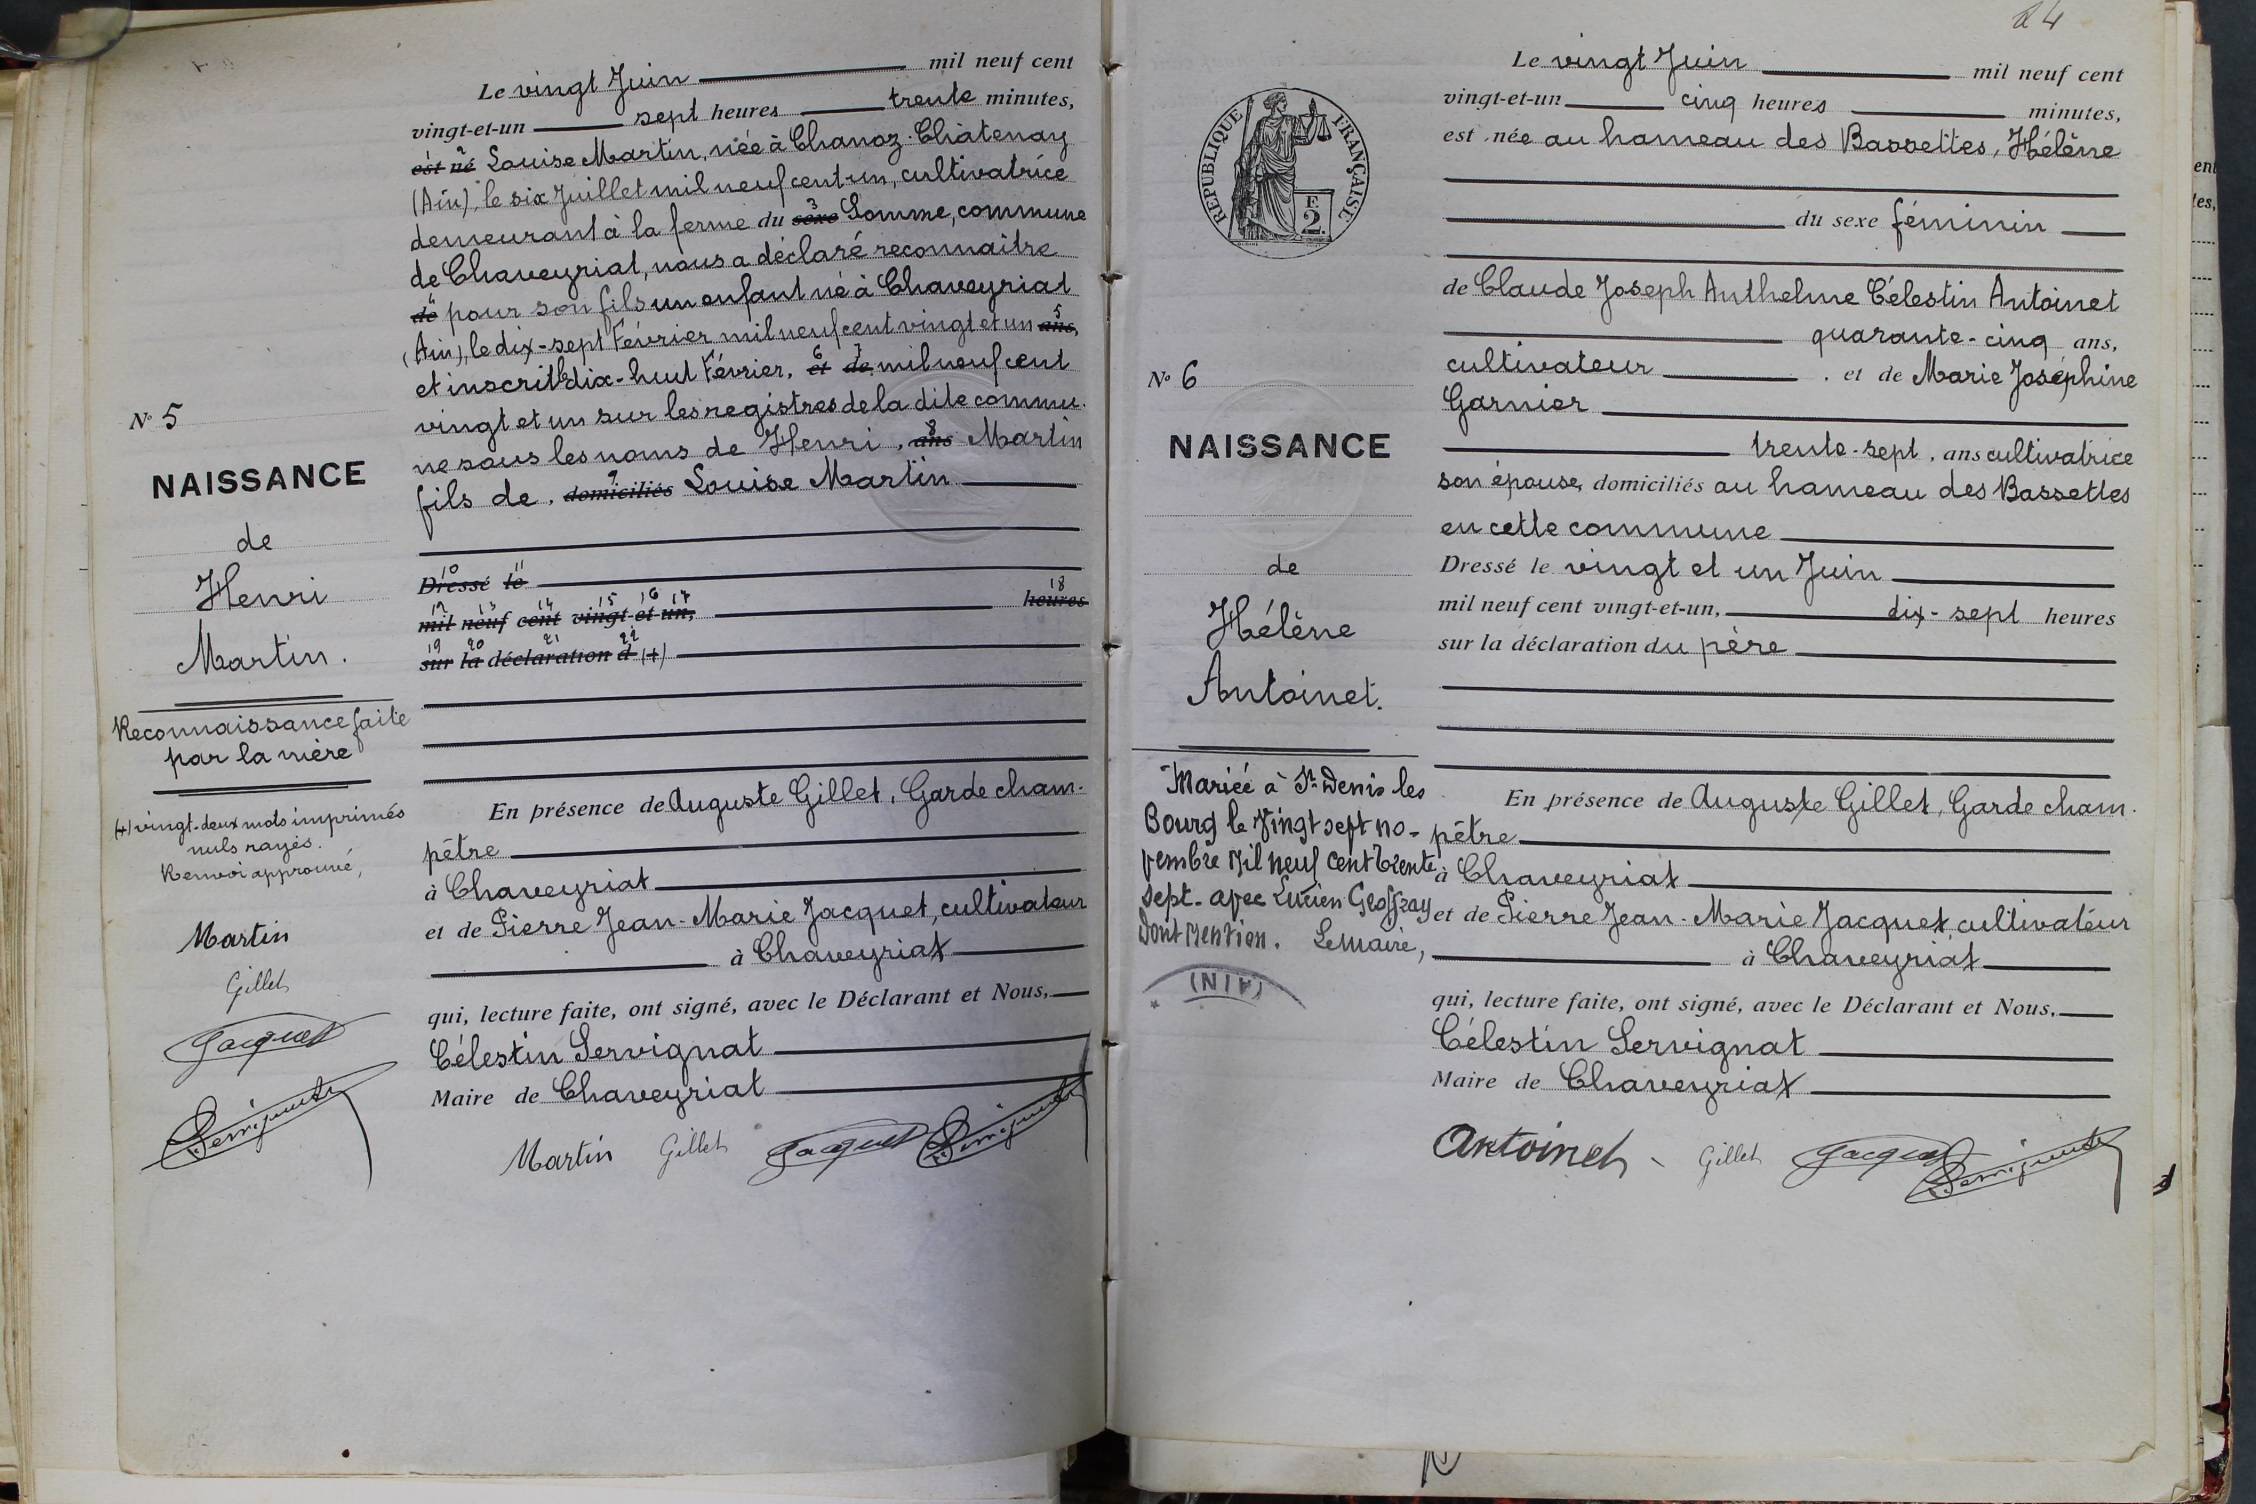 Le vingt Juin mil neuf cent
vingt-et-un sept heures trente minutes,
est né Louise Martin, née à Chanoz-Châtenay
(Ain), le six Juillet mil neuf cent un, cultivatrice
demeurant à la ferme du sexe Somme, commune
de Chaveyriat, nous a déclaré reconnaître
de pour son fils un enfant né à Chaveyriat
(Ain), le dix-sept Février mil neuf cent vingt et un ans,
et inscrit le dix-huit Février, et de mil neuf cent
vingt et un sur les registres de la dite commu-
ne sous les noms de Henri, ans Martin
fils de, domiciliés Louise Martin
Dressé le
mil neuf cent vingt-et-un, heures
sur la déclaration d (+)
En présence de Auguste Gillet, Garde cham-
pêtre
à Chaveyriat
et de Pierre Jean-Marie Jacquet, cultivateur
à Chaveyriat
qui, lecture faite, ont signé, avec le Déclarant et Nous,
Célestin Servignat
Maire de Chaveyriat
Martin Gillet Jacquet Servignat
N° 5
NAISSANCE
de
Henri
Martin.
Reconnaissance faite
par la mère
(+) vingt-deux mots imprimés
nuls rayés.
Renvoi approuvé,
Martin
Gillet
Jacquet
Servignat
24
RÉPUBLIQUE FRANÇAISE
E
2.
Le vingt Juin mil neuf cent
vingt-et-un cinq heures minutes,
est née au hameau des Bassettes, Hélène
du sexe féminin
de Claude Joseph Anthelme Célestin Antoinet
quarante-cinq ans,
cultivateur, et de Marie Joséphine
Garnier
trente-sept, ans cultivatrice
son épouse, domiciliés au hameau des Bassettes
en cette commune
Dressé le vingt et un Juin
mil neuf cent vingt-et-un, dix-sept heures
sur la déclaration du père
En présence de Auguste Gillet, Garde cham-
pêtre
à Chaveyriat
et de Pierre Jean-Marie Jacquet cultivateur
à Chaveyriat
qui, lecture faite, ont signé, avec le Déclarant et Nous,
Célestin Servignat
Maire de Chaveyriat
Antoinet Gillet Jacquet Servignat
N° 6
NAISSANCE
de
Hélène
Antoinet.
Mariée à St Denis les
Bourg le Vingt sept no-
vembre Mil neuf cent trente
sept. avec Lucien Geoffray
Dont Mention. Le Maire,
(AIN)